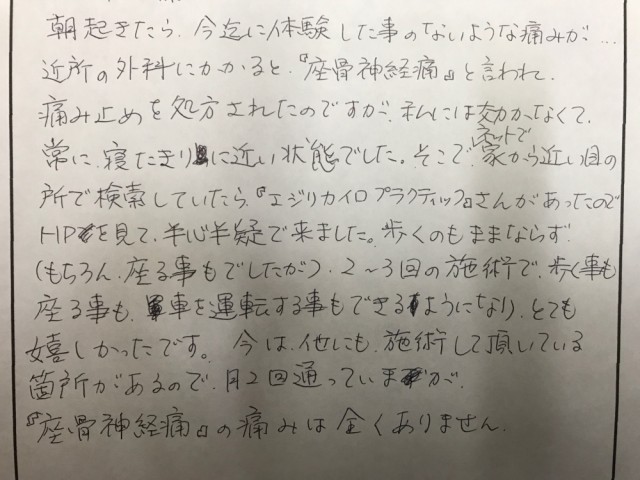 朝起きたら、今迄に体験した事のないような痛みが…
近所の外科にかかると、『座骨神経痛』と言われ、
痛み止めを処方されたのですが、私には効かなくて、
常に、寝たきりに近い状態でした。そこで、ネットで家から近い目の
所で検索していたら、『エジリカイロプラクティック』さんがあったので
HPを見て、半心半疑で来ました。歩くのもままならず
(もちろん、座る事もでしたが)、2〜3回の施術で、歩く事も
座る事も、車を運転する事もできるようになり、とても
嬉しかったです。今は、他にも、施術して頂いている
箇所があるので、月2回通っていますが、
『座骨神経痛』の痛みは全くありません。